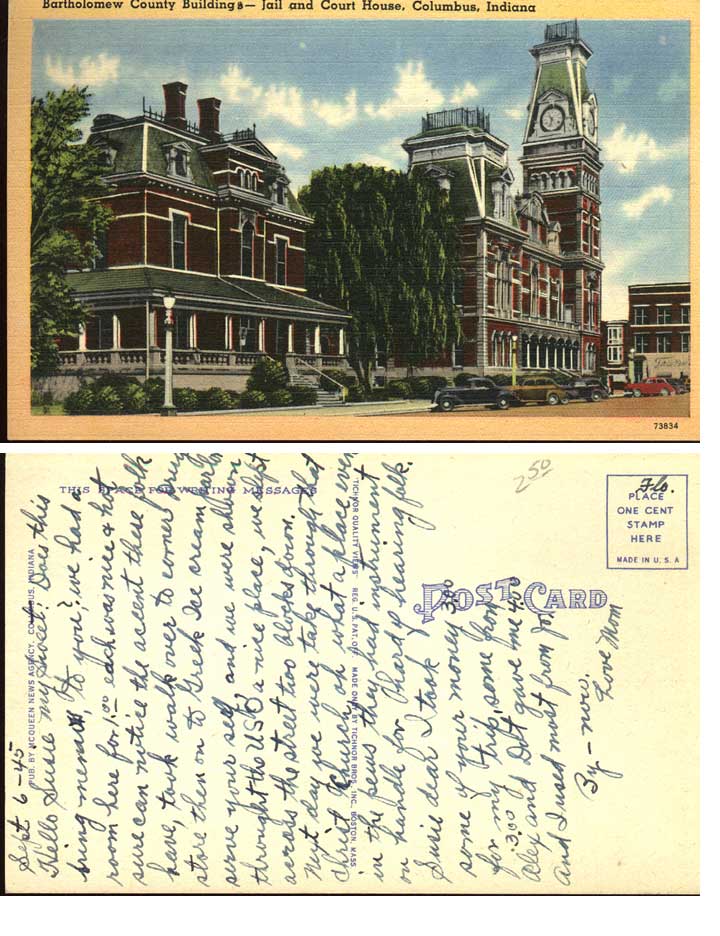 Bartholomew County Buildings— Jail and Court House, Columbus, Indiana
73834
THIS SPACE FOR WRITING MESSAGES
PUB. BY MCQUEEN NEWS AGENCY, COLUMBUS, INDIANA
"TICHNOR QUALITY VIEWS" REG. U.S. PAT. OFF. MADE ONLY BY TICHNOR BROS., INC., BOSTON, MASS.
POST CARD
2.50
Flo.
PLACE
ONE CENT
STAMP
HERE
MADE IN U. S. A
Sept 6-45
Hello Susie my sweet. Does this
bring to you? we had a
room here for 1.00 each was nice & hot
sure can notice the accent these folk
have, took walk over to corner drug
store then on to Greek Ice cream parlor
surve your self, and we were shown
throught the USO a nice place, we slept
across the street too blocks down.
Next day we were take through that
Christ Church oh what a place even
in the pews they had instriment
on handle for hard hearing folk.
Susie dear I took
some of your money 3.00
for my trip, some from
3.00 Alex and Dot gave me 4.00
and I used most from Jo.
By-now.
Love Mom